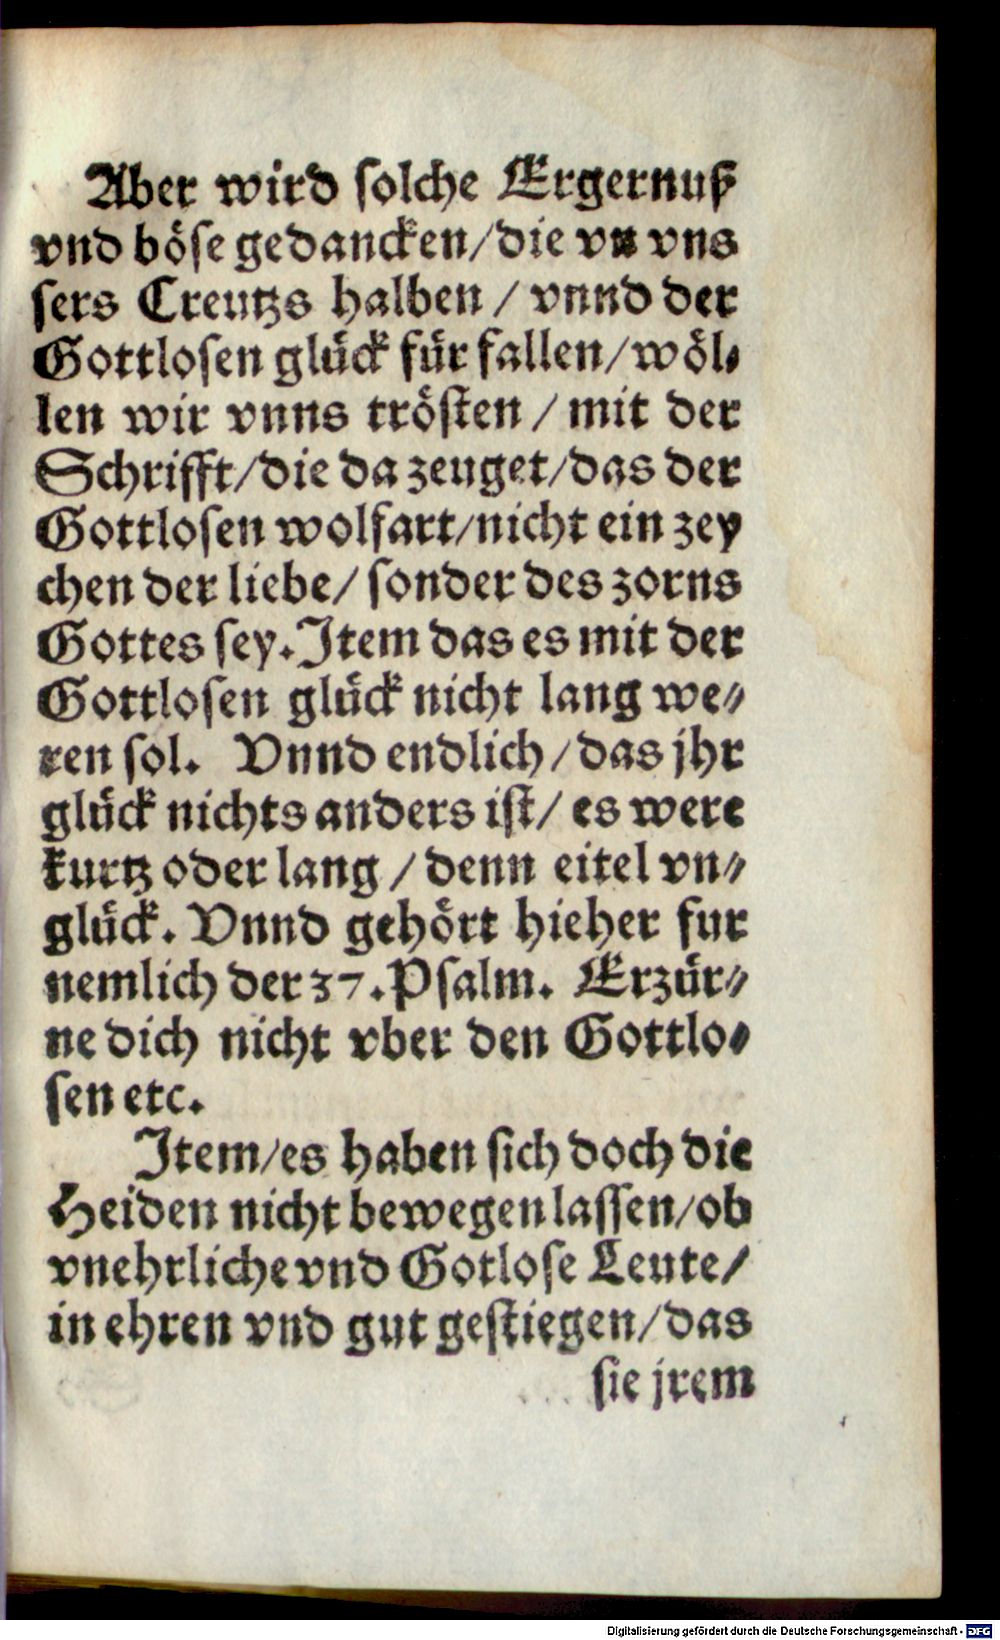 Aber wird solche Ergernuß
vnd böse gedancken/die vn vns
sers Creutzs halben / vnnd der
Gottlosen glück für fallen/wöl⸗
len wir vnns trösten / mit der
Schrifft/die da zeuget/das der
Gottlosen wolfart/nicht ein zey
chen der liebe/ sonder des zorns
Gottes sey. Item das es mit der
Gottlosen glück nicht lang we⸗
ren sol. Vnnd endlich/das jhr
glück nichts anders ist/ es were
kurtz oder lang / denn eitel vn⸗
glück. Vnnd gehört hieher fur
nemlich der 37. Psalm. Erzür⸗
ne dich nicht vber den Gottlo⸗
sen etc.
Item/es haben sich doch die
Heiden nicht bewegen lassen/ob
vnehrliche vnd Gotlose Leute/
in ehren vnd gut gestiegen/das
sie jrem
Digitalisierung gefördert durch die Deutsche Forschungsgemeinschaft - DFG